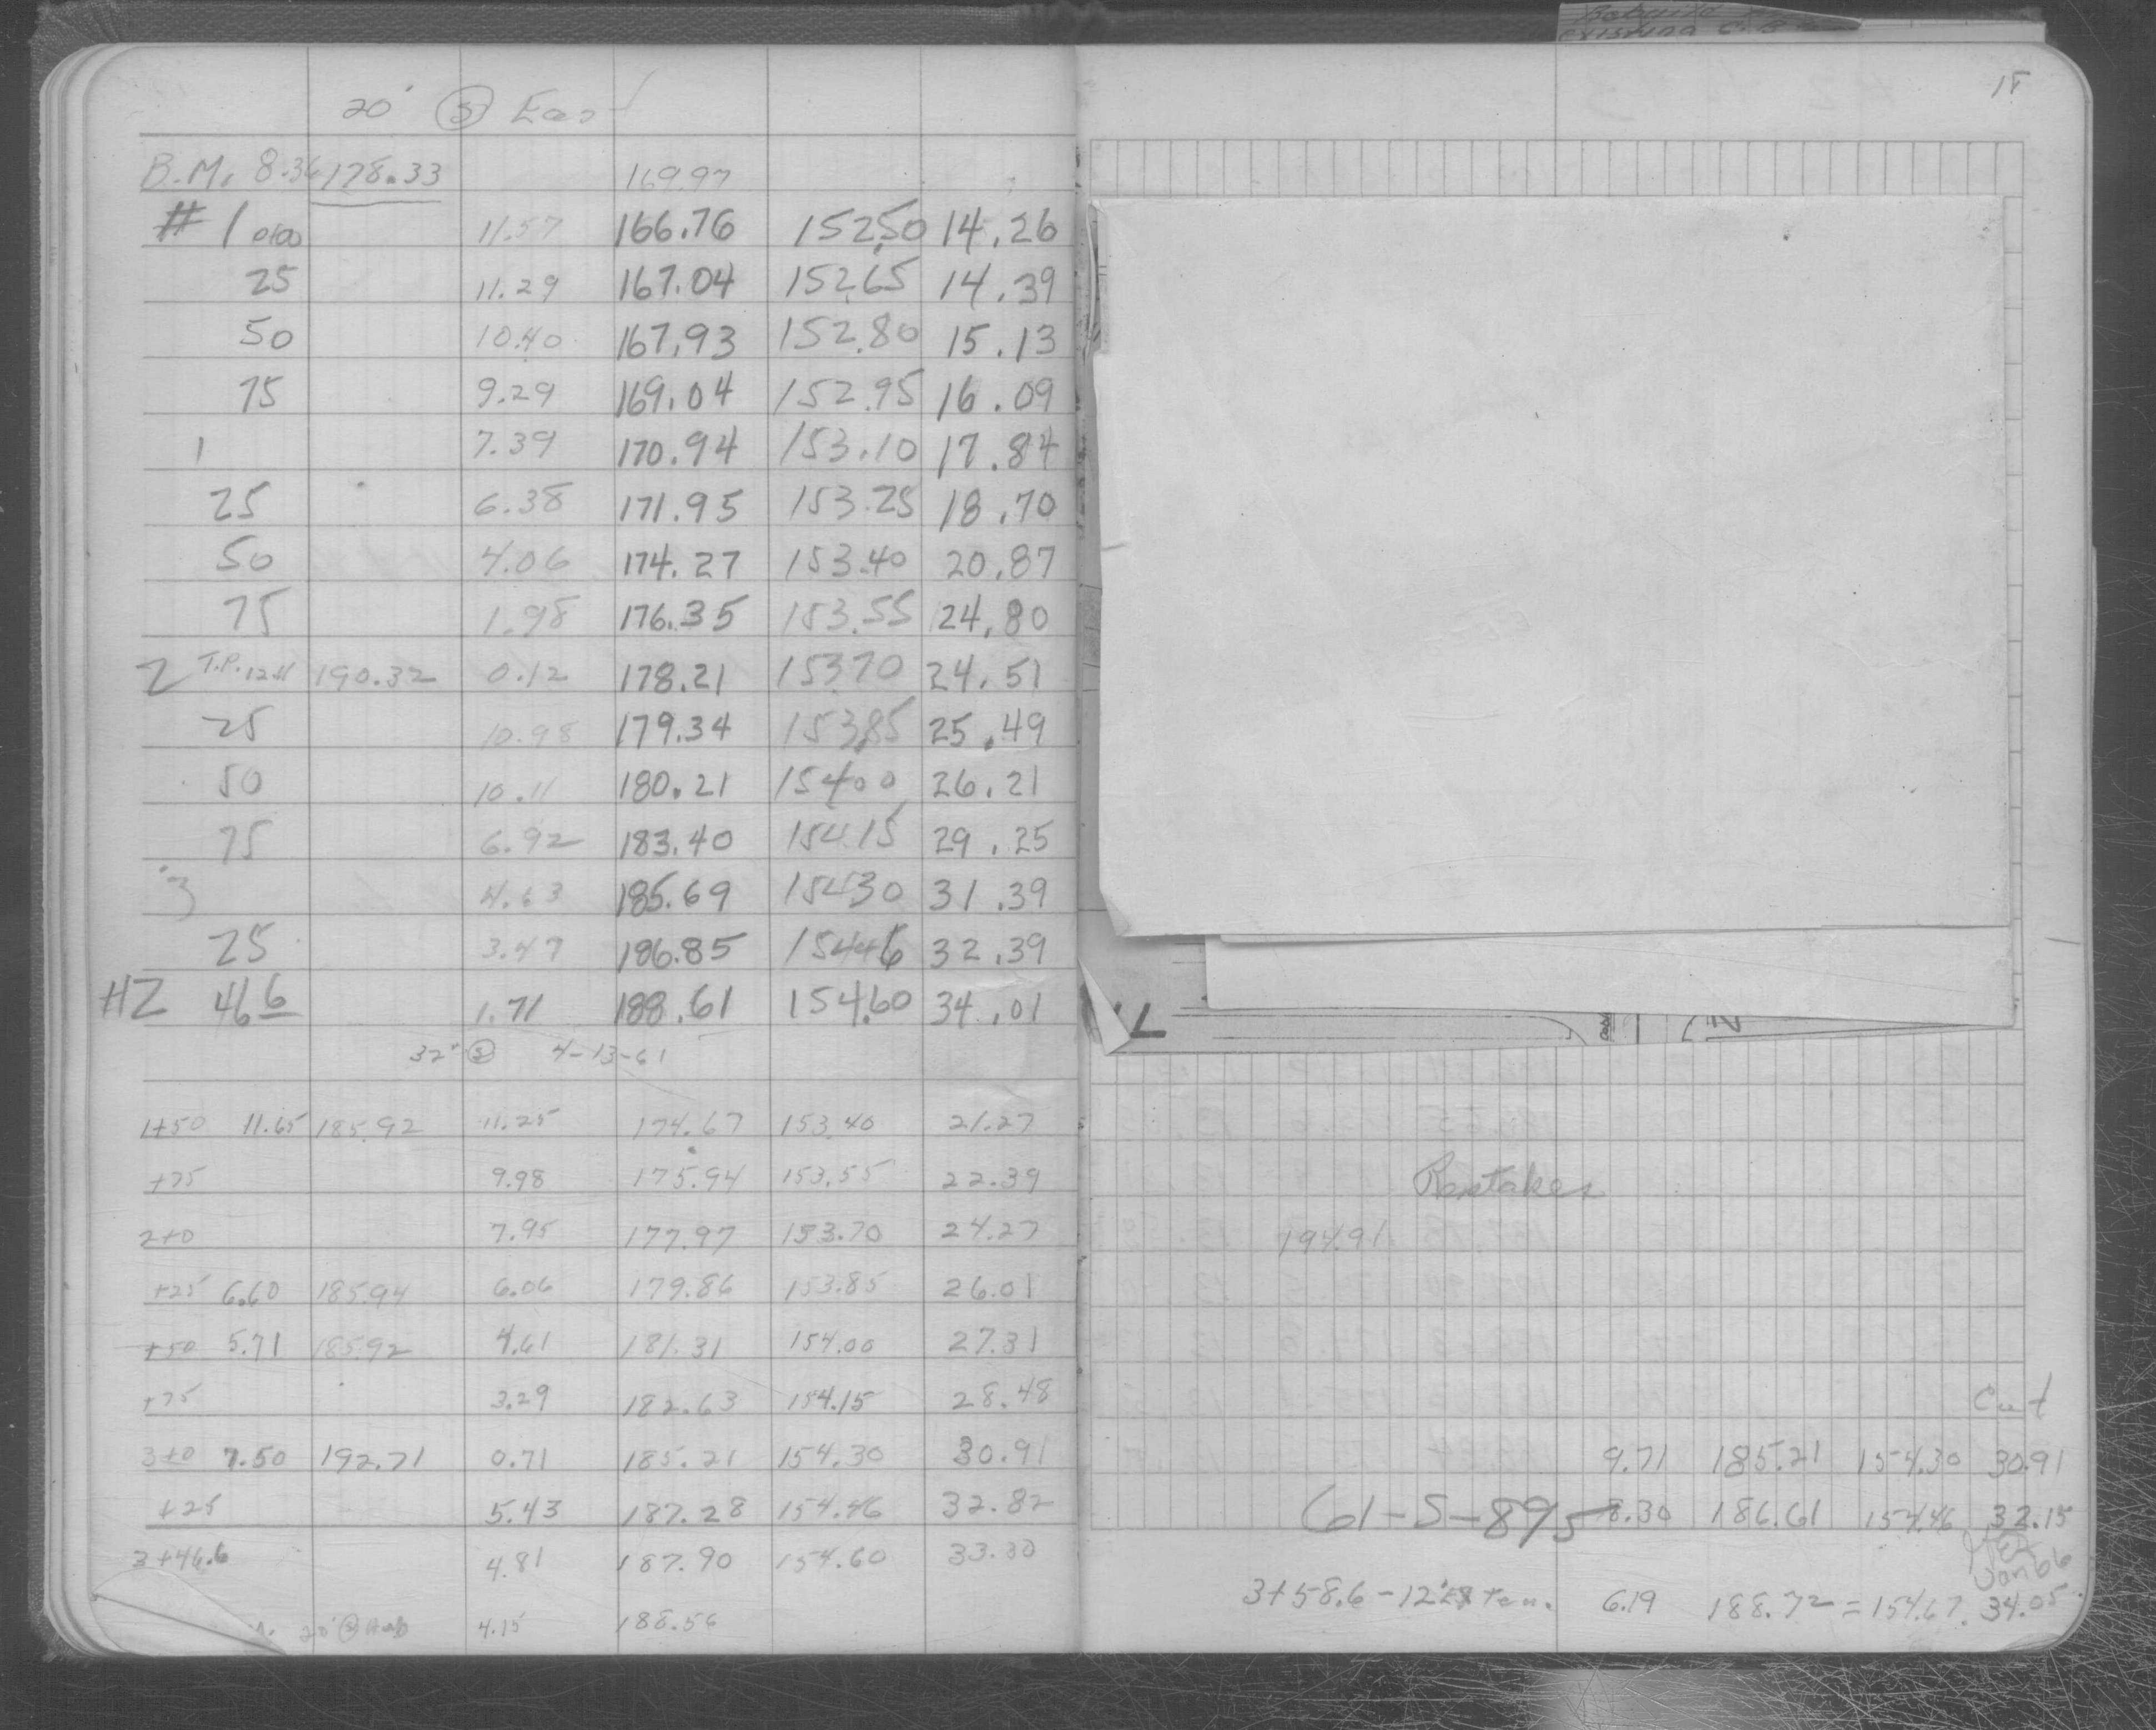 existing C.B.
15
20' (S) Eas
B.M. 8.36 178.33 169.97
# 1 0+00 11.57 166.76 152.50 14.26
25 11.29 167.04 152.65 14.39
50 10.40 167.93 152.80 15.13
75 9.29 169.04 152.95 16.09
1 7.39 170.94 153.10 17.84
25 6.38 171.95 153.25 18.70
50 4.06 174.27 153.40 20.87
75 1.98 176.35 153.55 24.80
2 T.P. 12.11 190.32 0.12 178.21 153.70 24.51
25 10.98 179.34 153.85 25.49
50 10.11 180.21 154.00 26.21
75 6.92 183.40 154.15 29.25
3 4.63 185.69 154.30 31.39
25 3.47 186.85 154.46 32.39
#2 46.6 1.71 188.61 154.60 34.01
32' (S) 4-13-61
1+50 11.65 185.92 11.25 174.67 153.40 21.27
+75 9.98 175.94 153.55 22.39
2+0 7.95 177.97 153.70 24.27
+25 6.60 185.94 6.06 179.86 153.85 26.01
+50 5.71 185.92 4.61 181.31 154.00 27.31
+75 3.29 182.63 154.15 28.48
3+0 7.50 192.71 0.71 185.21 154.30 30.91
+25 5.43 187.28 154.46 32.82
3+46.6 4.81 187.90 154.60 33.30
20' (S) Hub 4.15 188.56
Restakes
194.91
Cut
9.71 185.21 154.30 30.91
61-S-895 8.30 186.61 154.46 32.15
3+58.6 - 12' 6.19 188.72 = 154.67 34.05